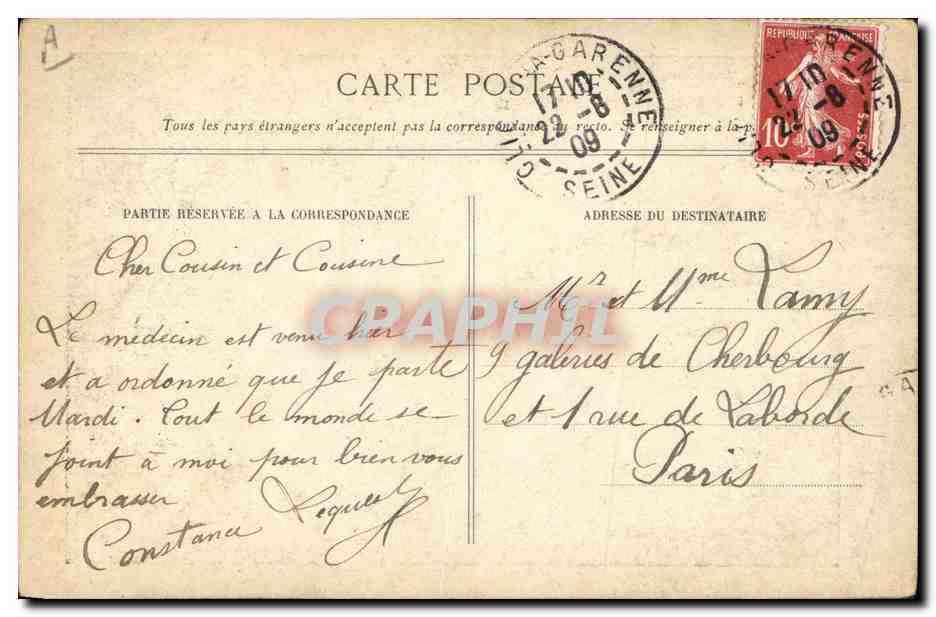 A
CARTE POSTALE
Tous les pays étrangers n'acceptent pas la correspondance au recto. Se renseigner à la p
LA-GARENNE
17 10
22 -8
09
SEINE
REPUBLIQUE FRANÇAISE
10
POSTES
GARENNE
17 10
22 -8
09
SEINE
PARTIE RÉSERVÉE A LA CORRESPONDANCE
Cher Cousin et Cousine
Le médecin est venu hier
et a ordonné que je parte
Mardi. Tout le monde se
joint à moi pour bien vous
embrasser
Constance
ADRESSE DU DESTINATAIRE
Mr et Mme Lamy
9 galeries de Cherbourg
et 1 rue de Laborde
Paris
CRAPHIL
GA